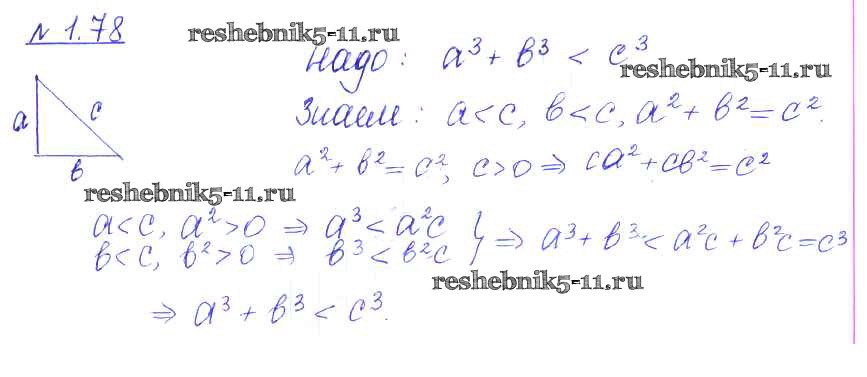 № 1.78
reshebnik5-11.ru
Надо: a³ + b³ < c³
reshebnik5-11.ru
a
c
b
Знаем: a<c, b<c, a² + b² = c².
a² + b² = c², c>0 ⇒ ca² + cb² = c²
reshebnik5-11.ru
a<c, a²>0 ⇒ a³ < a²c
b<c, b²>0 ⇒ b³ < b²c } ⇒ a³ + b³ < a²c + b²c = c³
reshebnik5-11.ru
⇒ a³ + b³ < c³.